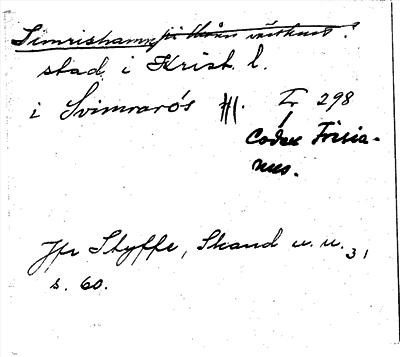 Simrishamn på Skånes västkust?
stad i Krist. l.
i Svimraros Hl. Fr 298
Codex Frisia-
nus.
Jfr Styffe, Skand u. u. 3,
s. 60.